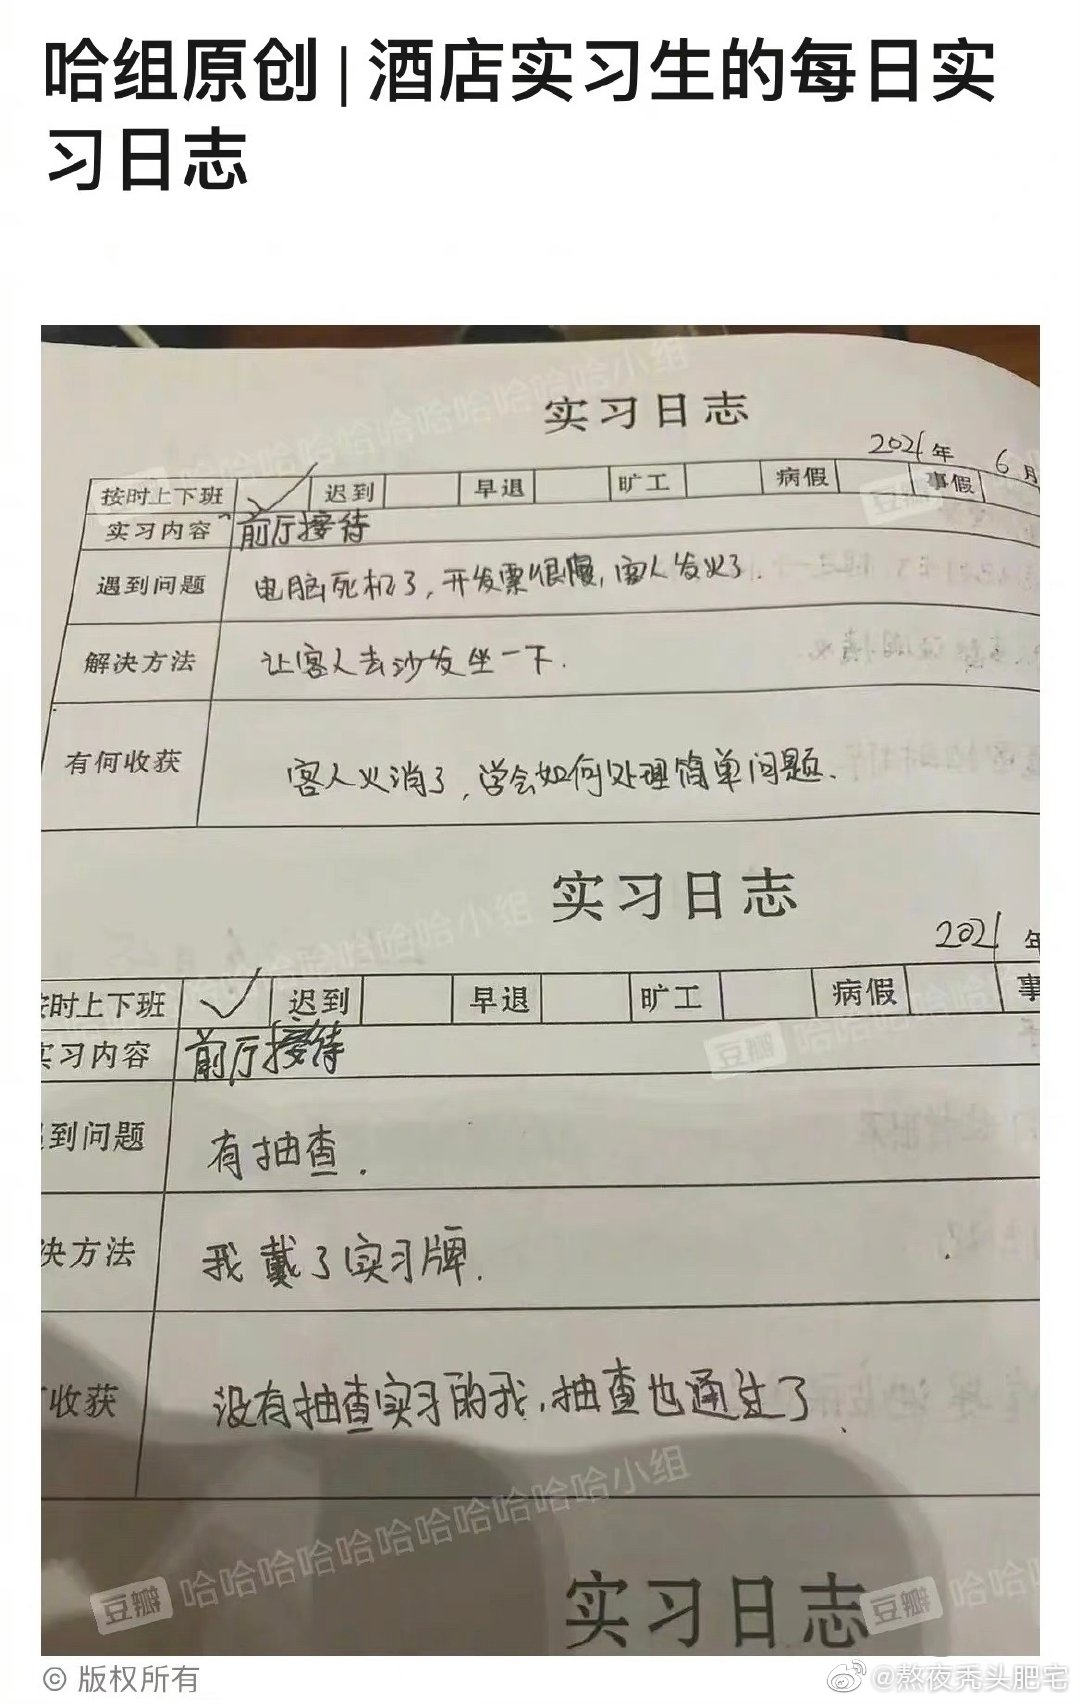 哈组原创 | 酒店实习生的每日实
习日志
实习日志
2021年 6月
按时上下班 ✓ 迟到 早退 旷工 病假 事假
实习内容 前厅接待
遇到问题 电脑死机了，开发票很慢，客人发火了.
解决方法 让客人去沙发坐一下.
有何收获 客人火消了，学会如何处理简单问题.
实习日志
2021 年
按时上下班 ✓ 迟到 早退 旷工 病假 事
实习内容 前厅接待
到问题 有抽查.
决方法 我戴了实习牌.
收获 没有抽查实习的我，抽查也通过了.
实习日志
豆瓣 哈哈哈哈哈哈哈哈哈小组
© 版权所有
@熬夜秃头肥宅